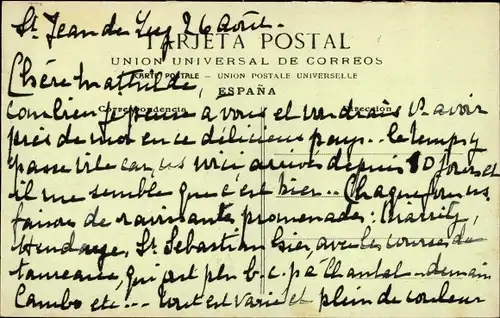 St Jean de Luz 26 Août.
TARJETA POSTAL
UNION UNIVERSAL DE CORREOS
CARTE POSTALE – UNION POSTALE UNIVERSELLE
ESPAÑA
Chère Mathilde,
Correspondencia
Dirección
Combien je pense a vous et voudrais vs avoir
près de moi en ce délicieux pays.. le temps y
passe vite car, ns voici arrivés depuis 10 jours et
il me semble que c'est hier.. Chaque jour ns
faisons de ravissantes promenades: Biarritz,
Hendaye, St Sébastian hier, avec les courses de
taureaux, qui ont plu b.c.p à Chantal – demain
Cambo etc... tout est varié et plein de couleur